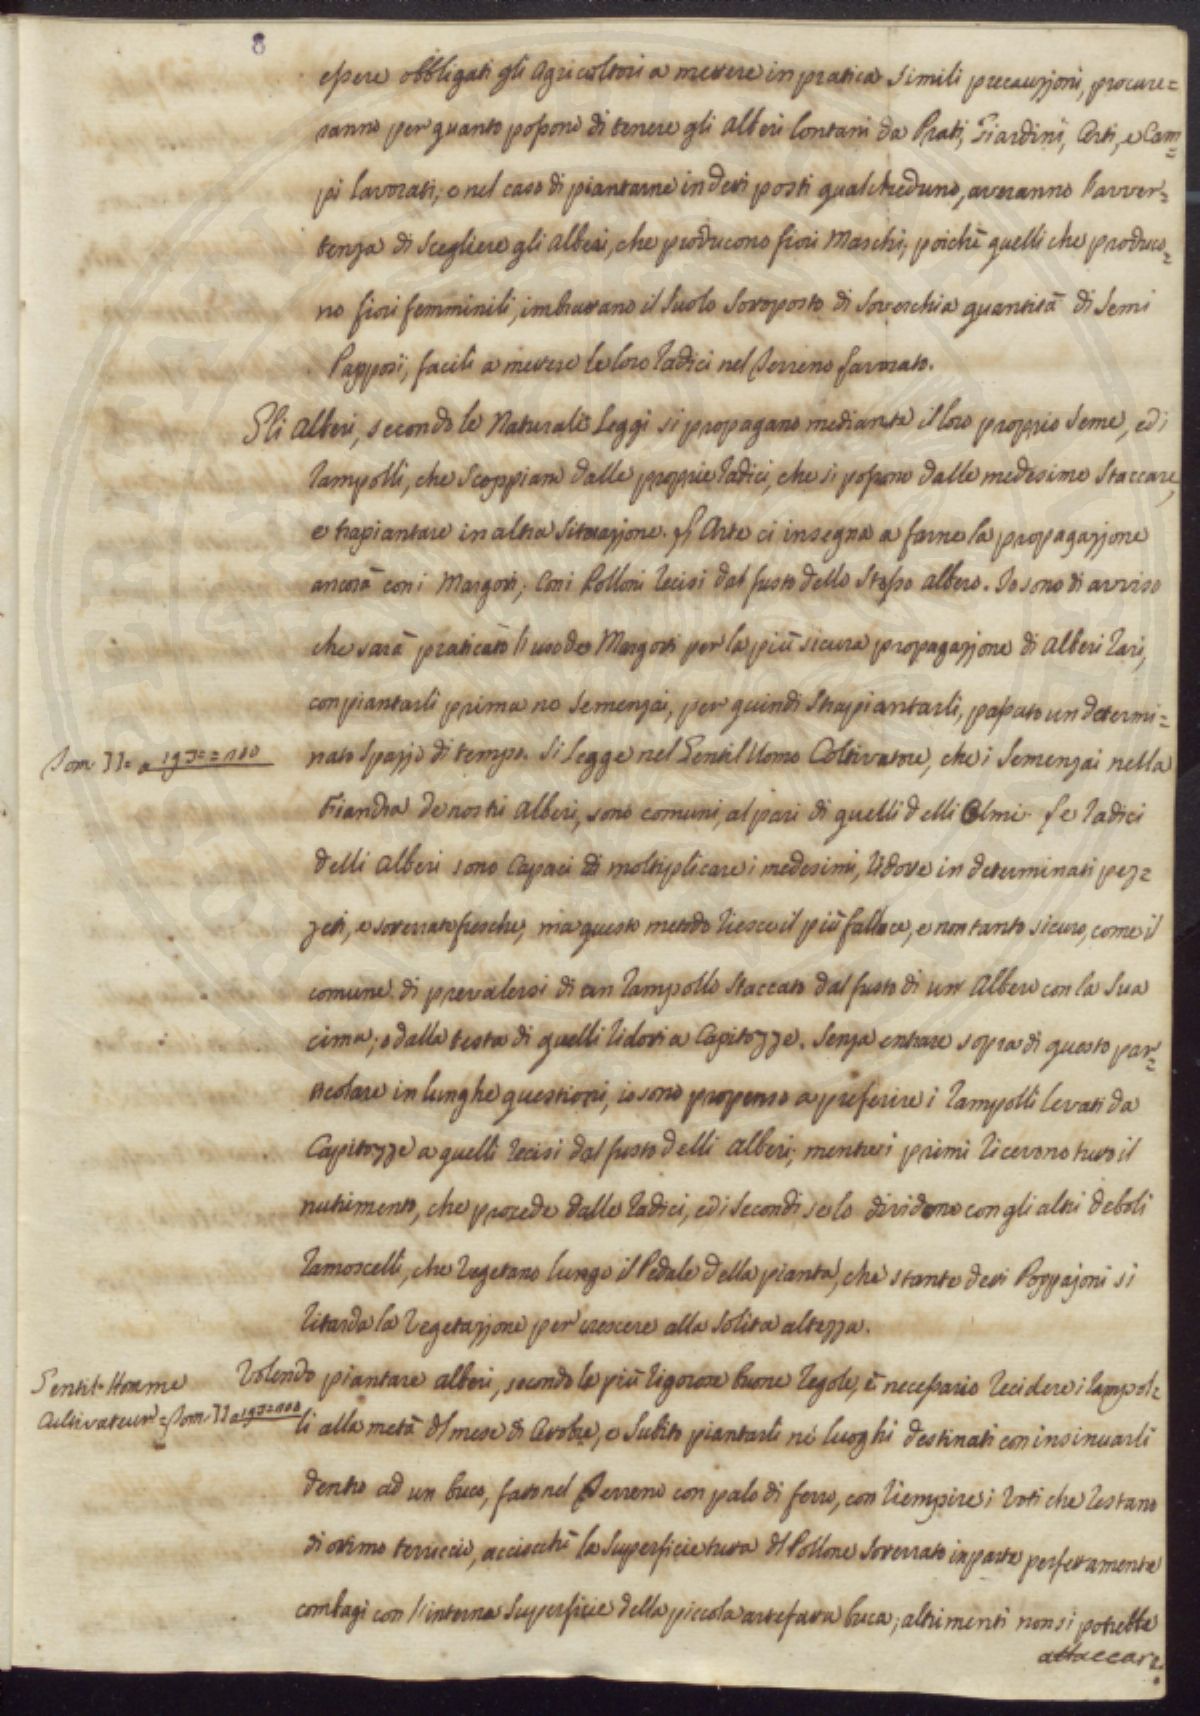 8
essere obbligati gli Agricoltori a mettere in pratica simili precauzzioni, procure=
ranno per quanto possono di tenere gli Alberi lontani da Prati, Giardini, Orti, e Cam=
pi lavorati; e nel caso di piantarne in detti posti qualcheduno, averanno l'avver=
tenza di scegliere gli Alberi, che producono fiori Maschi; poichè quelli che produco=
no fiori femminili, imbrattano il suolo sottoposto di soverchia quantità di Semi
Papposi, facili a mettere le loro Radici nel Terreno lavorato.
Gli Alberi, secondo le Naturali Leggi si propagano mediante il loro proprio Seme, ed i
Rampolli, che scoppiano dalle proprie Radici, che si possono dalle medesime staccare,
e trapiantare in altra Situazzione. L'Arte ci insegna a farne la propagazzione
ancorà con i Margotti; con i Polloni recisi dal fusto dello stesso albero. Io sono di avviso
che sarà praticato l'uso de Margotti per la più sicura propagazzione di Alberi Rari,
con piantarli prima ne Semenzai, per quindi strapiantarli, passato un determi=
Tom. II= a 193==100
nato spazzio di tempo. Si legge nel Gentil Uomo Coltivatore, che i Semenzai nella
Fiandra de nostri Alberi, sono comuni, al pari di quelli delli Olmi. Le Radici
delli Alberi sono capaci di moltiplicare i medesimi, Ridotte in determinati pez=
zetti, e sotterrate fresche; ma questo metodo riesce il più fallace, e non tanto sicuro, come il
comune di prevalersi di un Rampollo staccato dal fusto di un Albero con la sua
cima; o dalla testa di quelli ridotti a Capitozze. Senza entrare sopra di questo par=
ticolare in lunghe questioni, io sono propenso a preferire i Rampolli levati da
Capitozze a quelli recisi dal fusto delli Alberi; mentre i primi ricevono tutto il
nutrimento, che procede dalle Radici, ed i secondi se lo dividono con gli altri deboli
Ramoscelli, che vegetano lungo il Pedale della pianta, che stante detti Poppajoni si
ritarda la vegetazzione per crescere alla solita altezza.
Gentil-Homme
Cultivateur = Tom: II a 193=100
Volendo piantare alberi, secondo le più rigorose buone regole, è necessario recidere i Rampol=
li alla metà del mese di Ottobre, e subito piantarli nè luoghi destinati con insinuarli
dentro ad un buco, fatto nel Terreno con palo di ferro, con riempire i voti che restano
di ottimo terriccio, acciocchè la superficie tutta del Pollone sotterrato in parte perfettamente
combagi con l'interna superficie della piccola artefatta buca; altrimenti non si potrebbe
attaccare.